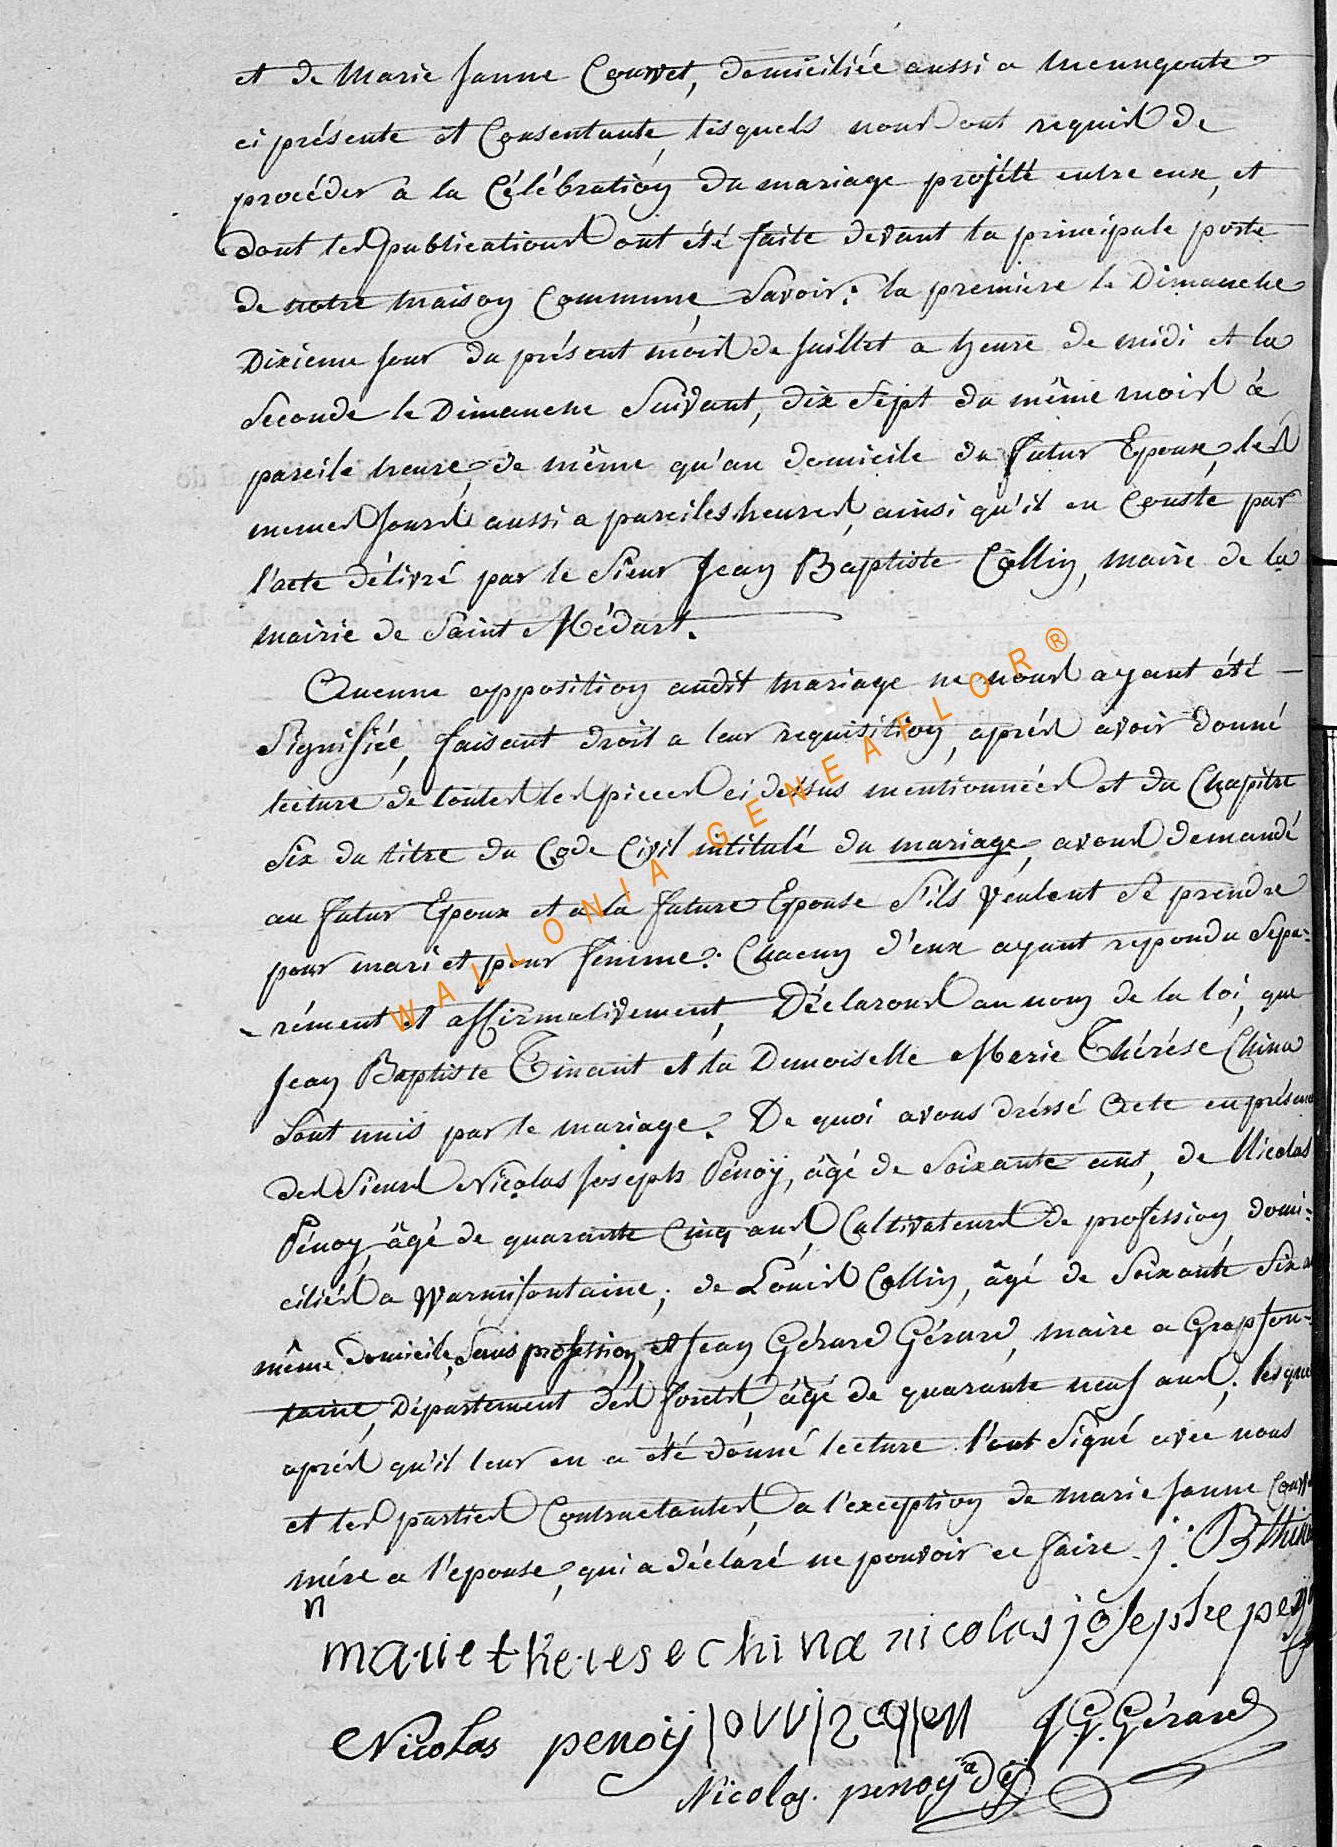 et de Marie Janne Couvet, domiciliée aussi a menugoute
ci présente et Consentante, lesquels nous ont requis de
procéder à la Célébration du mariage projété entre eux, et
dont les publications ont été faite devant la principale porte
de notre maison Commune, Savoir: la première le Dimanche
Dixieme Jour du présent mois de Juillet a heure de midi et la
Seconde le Dimanche Suivant, dix Sept du même mois à
pareile heure, de même qu'au domicile du futur Epoux, les
memes Jours aussi a pareiles heures, ainsi qu'il en Conste par
l'acte délivré par le Sieur Jean Baptiste Collin, maire de la
mairie de Saint Médart.
Aucune opposition audit mariage ne nous ayant été
Signifiée, faisant droit a leur requisition, après avoir donné
lecture de toutes les pieces ci dessus mentionnées et du Chapitre
Six du titre du Code Civil intitulé du mariage, avons demandé
au futur Epoux et a la future Epouse S'ils veulent Se prendre
pour mari et pour femme: Chacun d'eux ayant repondu Sépa-
rément et affirmativement, Déclarons au nom de la loi, que
Jean Baptiste Tinant et la Demoiselle Marie Thérése China
Sont unis par le mariage. De quoi avons dréssé Acte en présence
des Sieurs Nicolas Joseph Pénoÿ, âgé de Soixante ans, de Nicolas
Pénoy, âgé de quarante Cinq ans, Cultivateurs de profession, domi-
ciliés a Warmifontaine; de Louis Collin, âgé de Soixante Six a
même domicile, Sans profession, et Jean Gérard Gérard, maire a Grapfon-
taine, Département des forets, âgé de quarante neuf ans; lesque
après qu'il leur en a été donné lecture l'ont Signé avec nous
et les parties Contractantes, a l'exception de marie Janne Couve
mére a l'epouse, qui a déclaré ne pouvoir ce faire. j: B thina
marie therese china nicolas josephe penoÿ
Nicolas penoij louis collin J. G. Gérard
Nicolas. penoy adj
WALLONIA-GENEAFLOR®